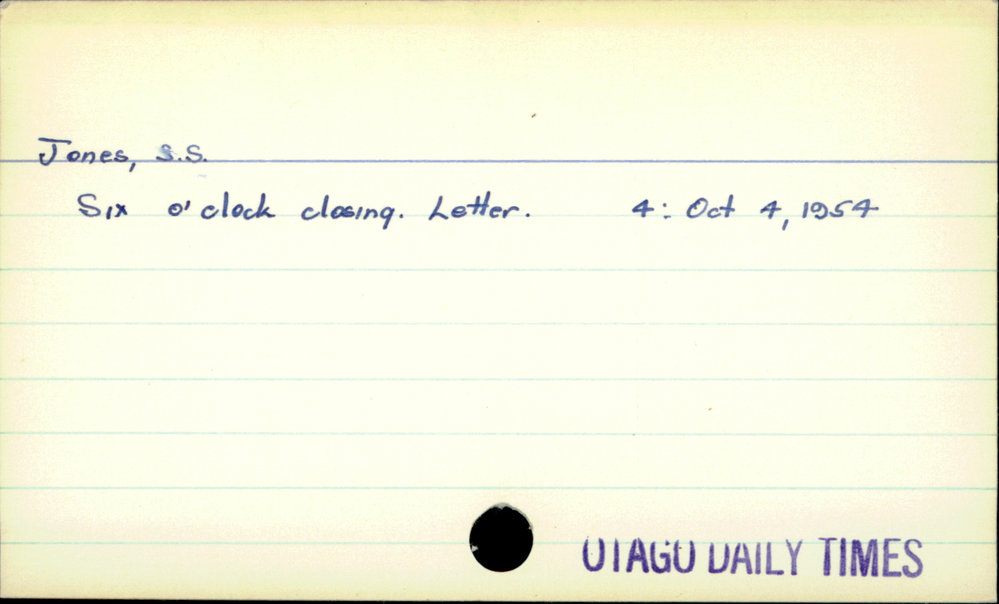 Jones, S.S.
Six o'clock closing. Letter. 4: Oct 4, 1954
OTAGO DAILY TIMES